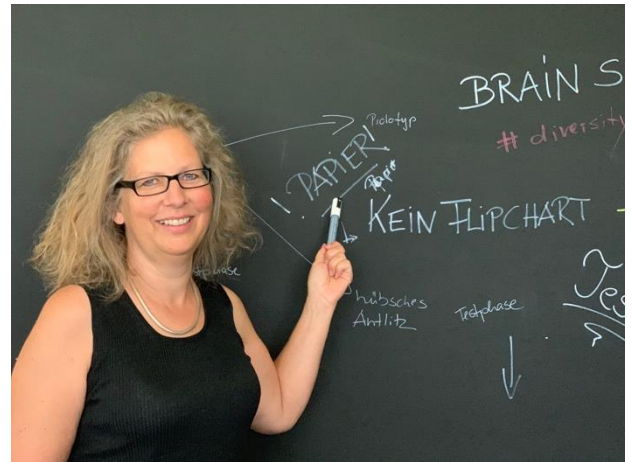 BRAIN S
# diversity
Prototyp
! PAPIER!
Papier
KEIN FLIPCHART
Testphase
hübsches
Antlitz
Testphase
Tes